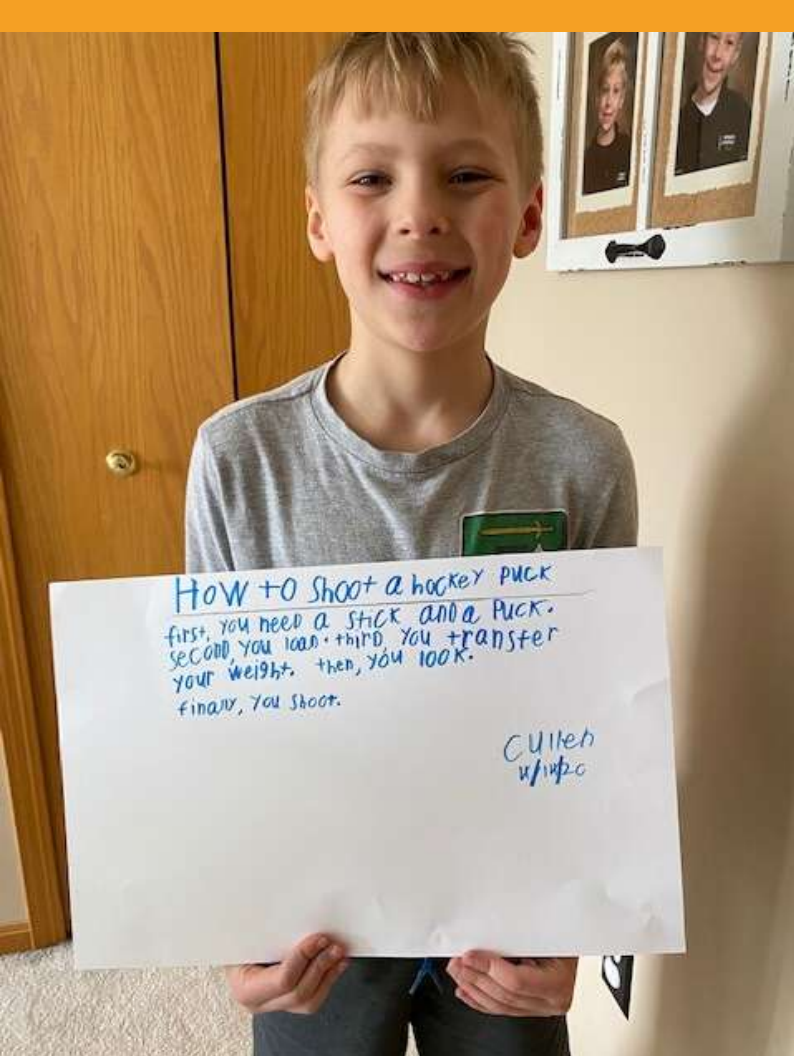 How to shoot a hockey puck
first, you need a stick and a puck.
second, you loan. third you transfer
your weight. then, you look.
finally, you shoot.
Cullen